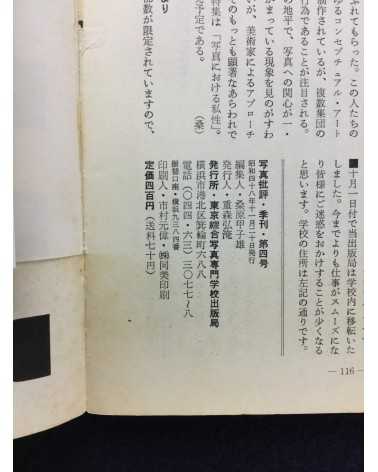 ■十月一日付で当出版局は学校内に移転いた
しました。今までよりも仕事がスムーズにな
り皆様にご迷惑をおかけすることが少くなる
と思います。学校の住所は左記の通りです。
写真批評・季刊・第四号
昭和四十八年十一月二十日発行
編集人・桑原甲子雄
発行人・重森弘淹
発行所・東京綜合写真専門学校出版局
横浜市港北区箕輪町六八八
電話（〇四四・六三）三〇七七〜八
振替口座・横浜九三八四番
印刷人・市村元偉・㈱同美印刷
定価四百円（送料七十円）
ふれてもらった。この人たちの
ゆるコンセプチュアル・アート
制作されているが、複数集団の
行為であることが注目される。
の地平で、写真への関心が一・
がまっている現象を見のがすわ
いが、美術家によるアプローチ
そのもっとも顕著なあらわれで
特集は「写真における私性」。
を予定である。（桑）
より
部数が限定されていますので、
— 116 —